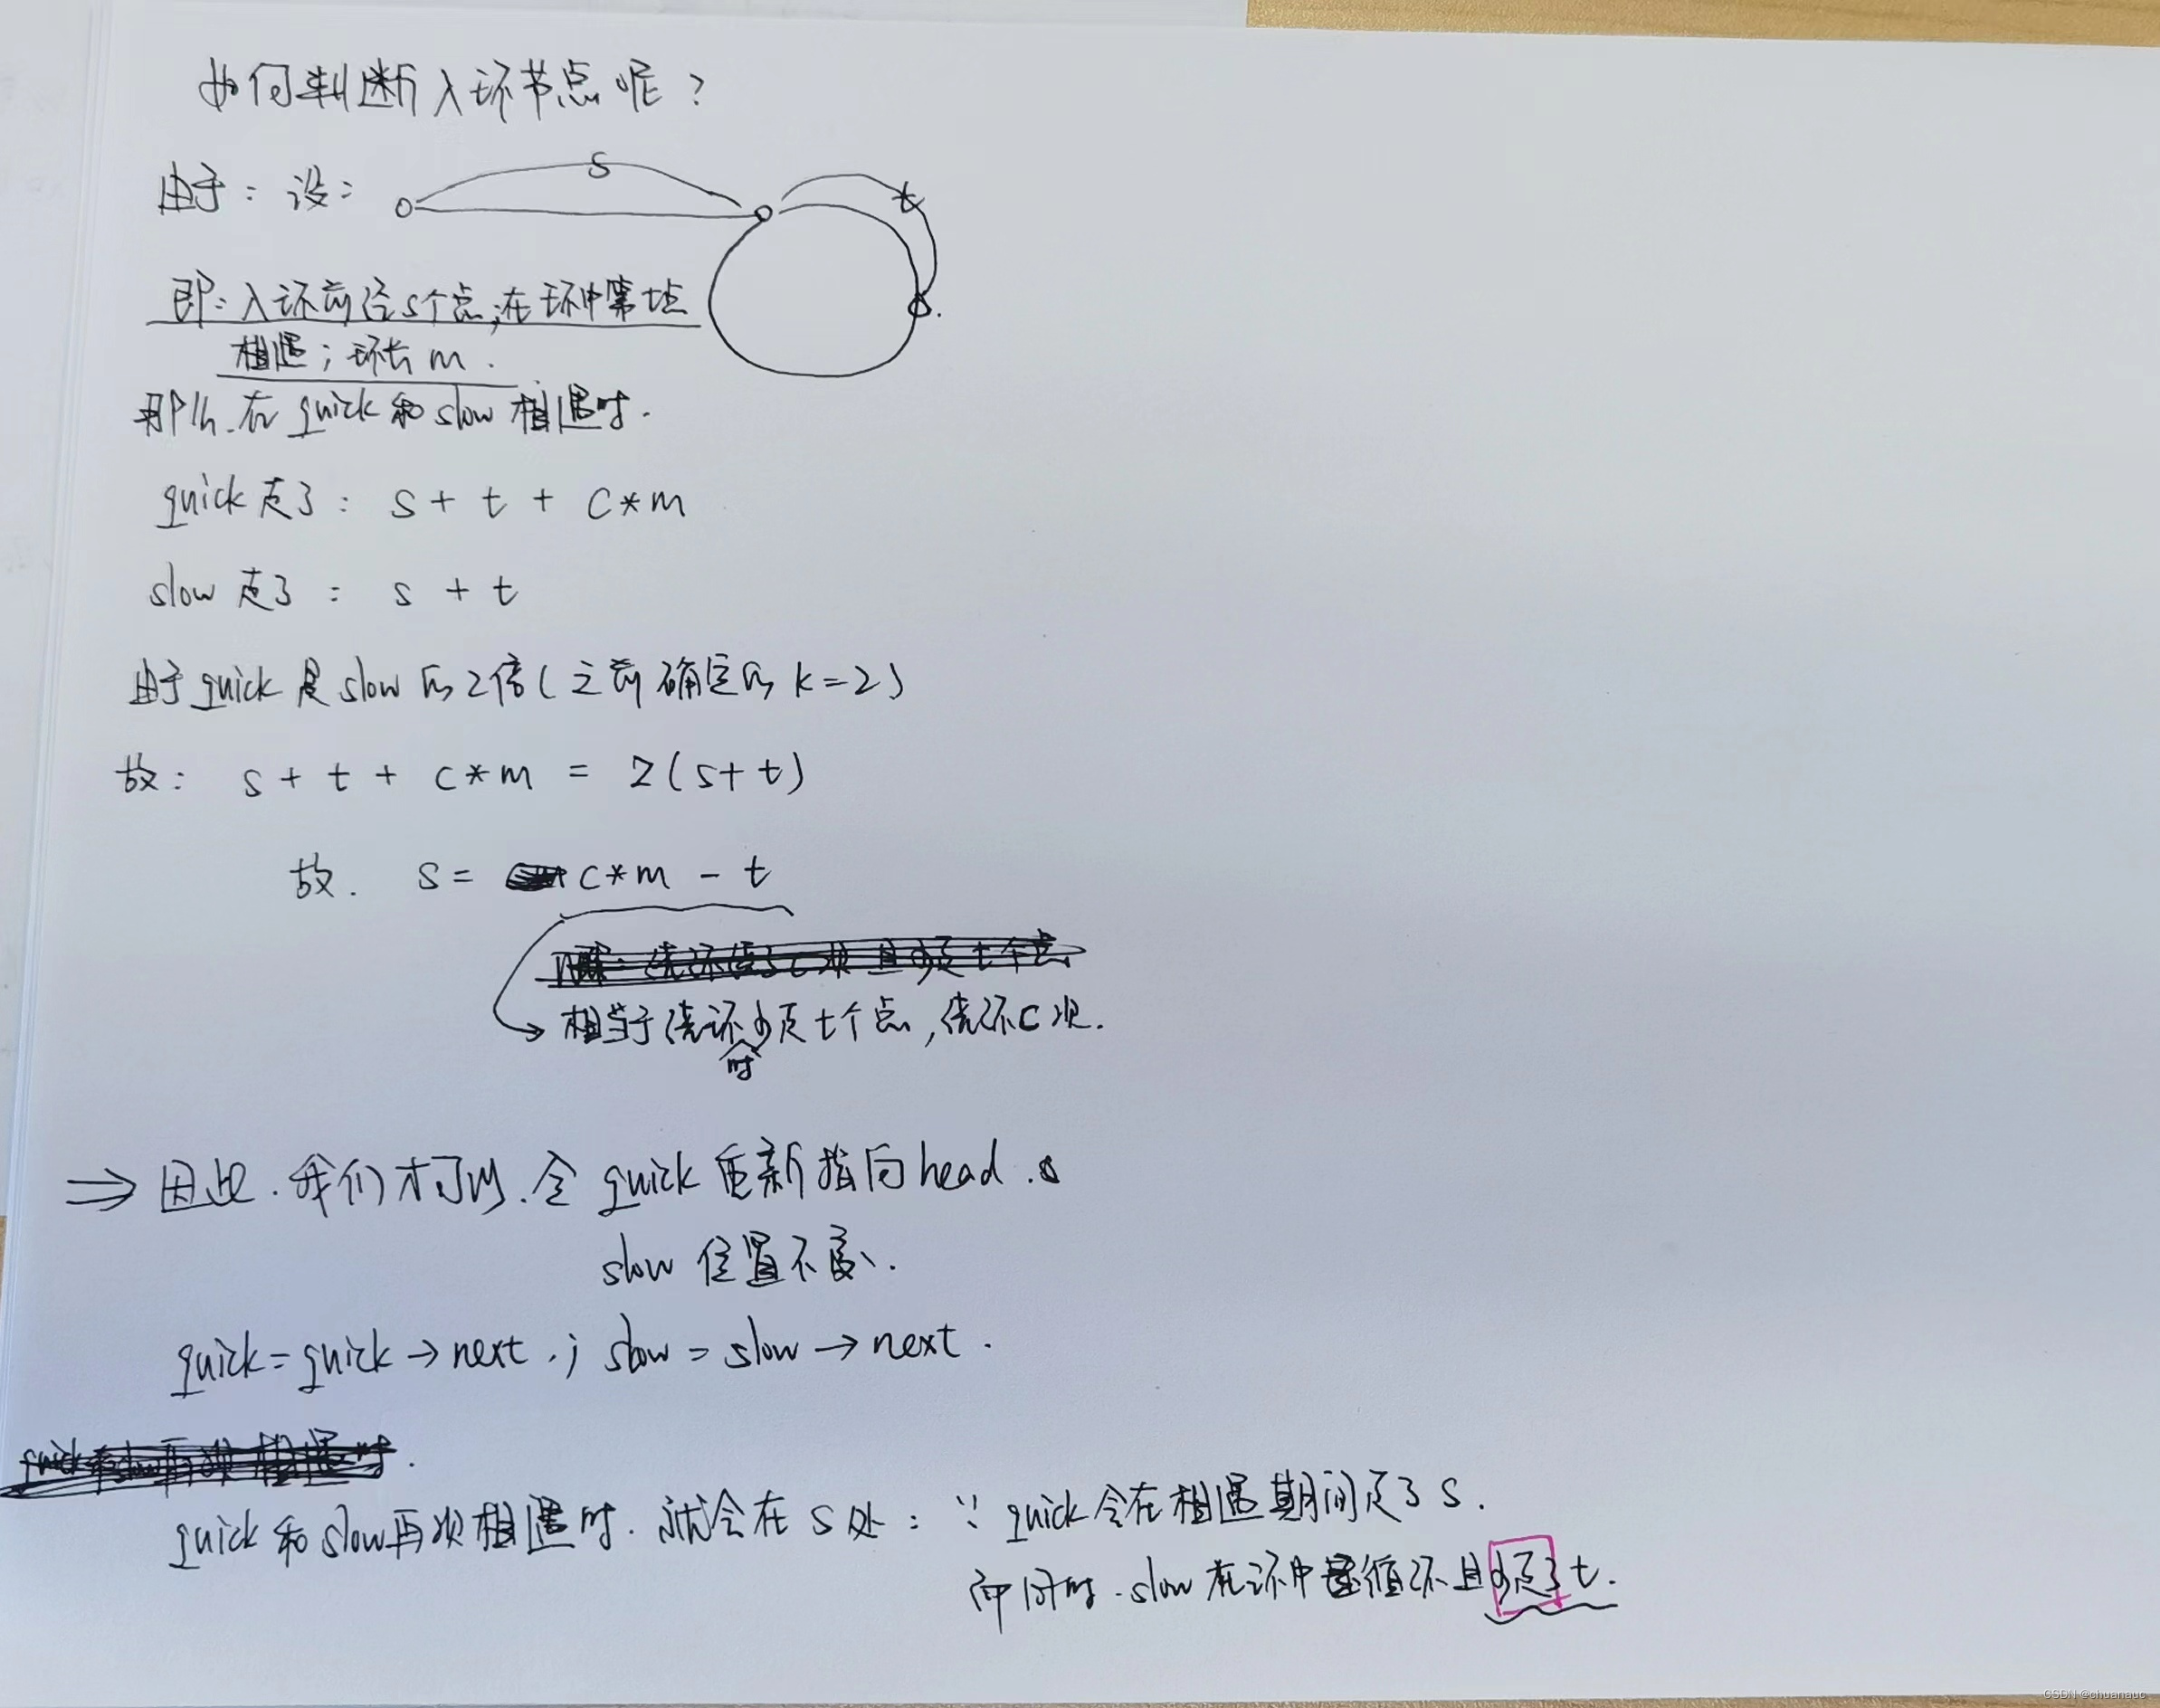 如何判断入环节点呢?
由于: 设: S t
即: 入环前经s个点,在环中第t点
相遇; 环长 m.
那么.在 quick和 slow 相遇时.
quick走了: S + t + C*m
slow 走了: s + t
由于quick是 slow的2倍(之前确定的 k=2)
故: s + t + c*m = 2(s+t)
故. S = c*m - t
相当于绕环时少走t个点,绕环C次.
⇒ 因此.我们才可以.令 quick 重新指向head.
slow 位置不变.
quick=quick→next.; slow=slow→next.
quick和slow再次相遇时.就会在 S 处: ∵ quick会在相遇期间走了 S.
而同时.slow在环中循环且少走了t.
CSDN @chuanauc